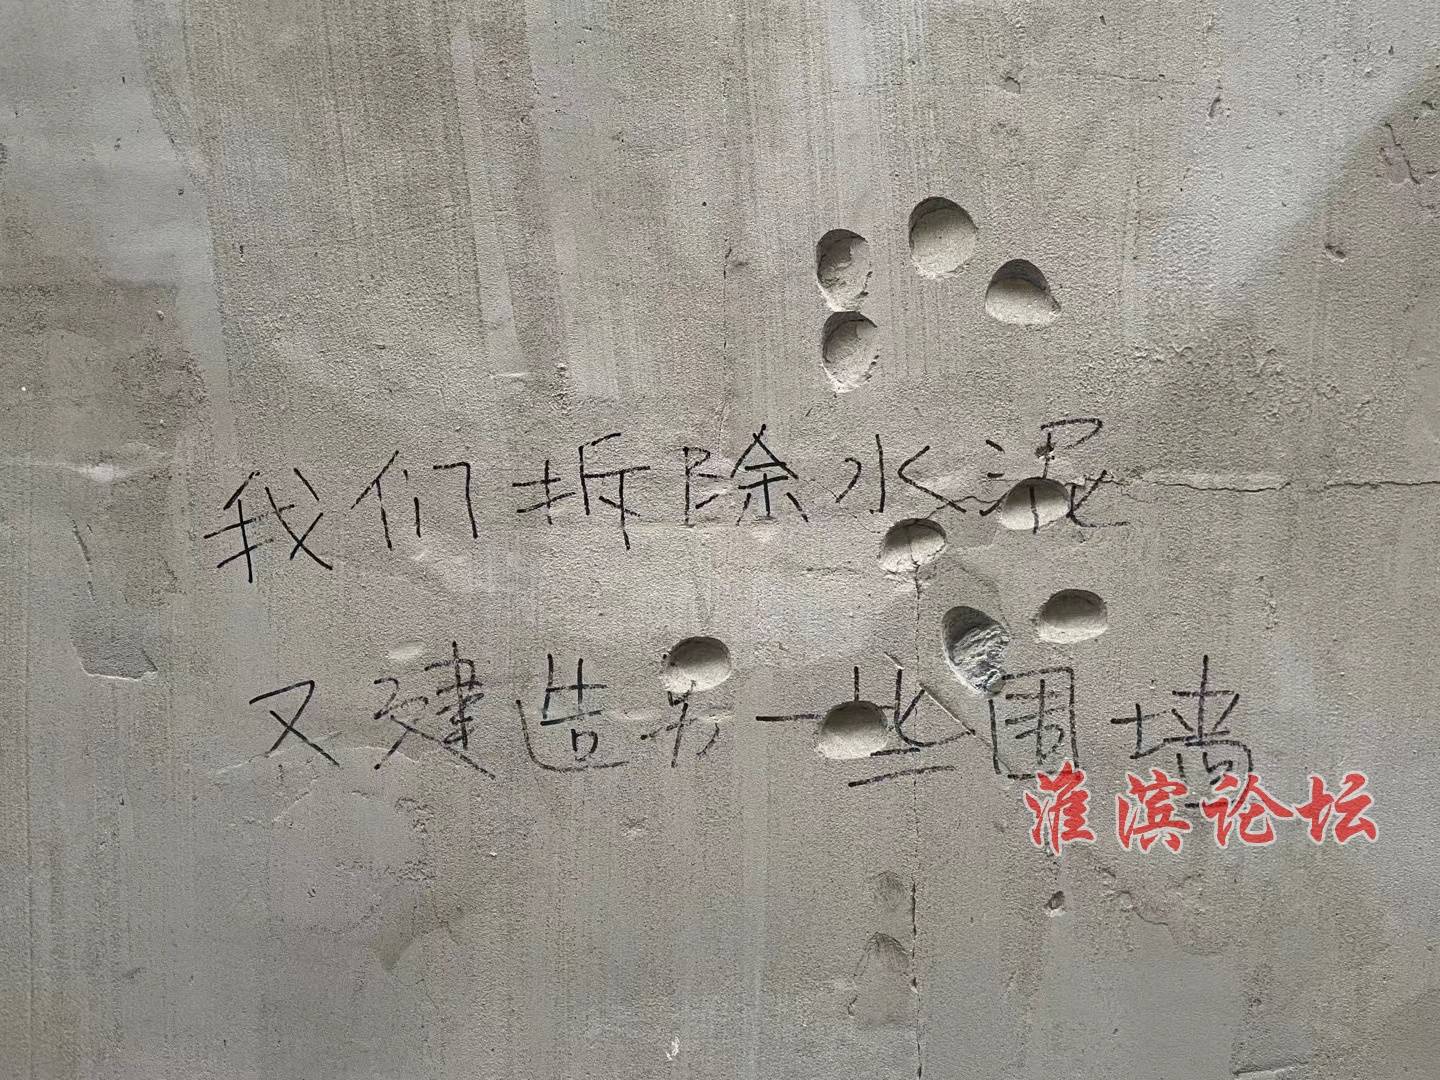 我们拆除水泥
又建造另一些围墙
淮滨论坛